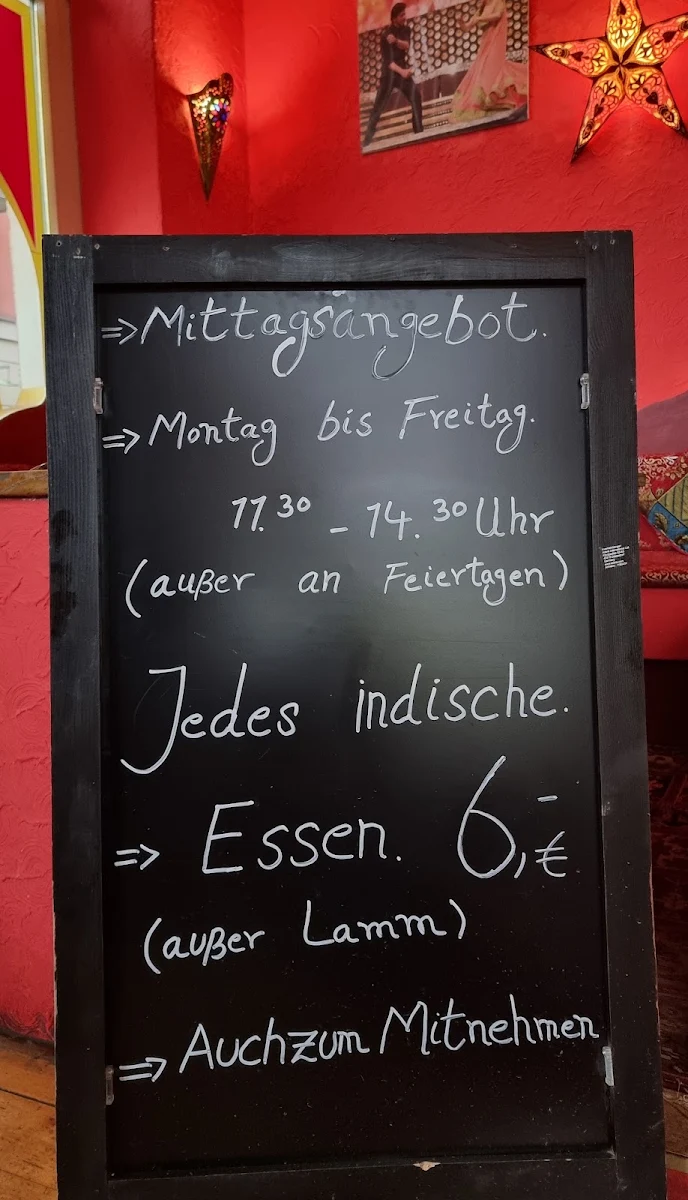 ⇒ Mittagsangebot.
⇒ Montag bis Freitag.
11.³⁰ – 14.³⁰ Uhr
(außer an Feiertagen)
Jedes indische.
⇒ Essen. 6,-€
(außer Lamm)
⇒ Auch zum Mitnehmen